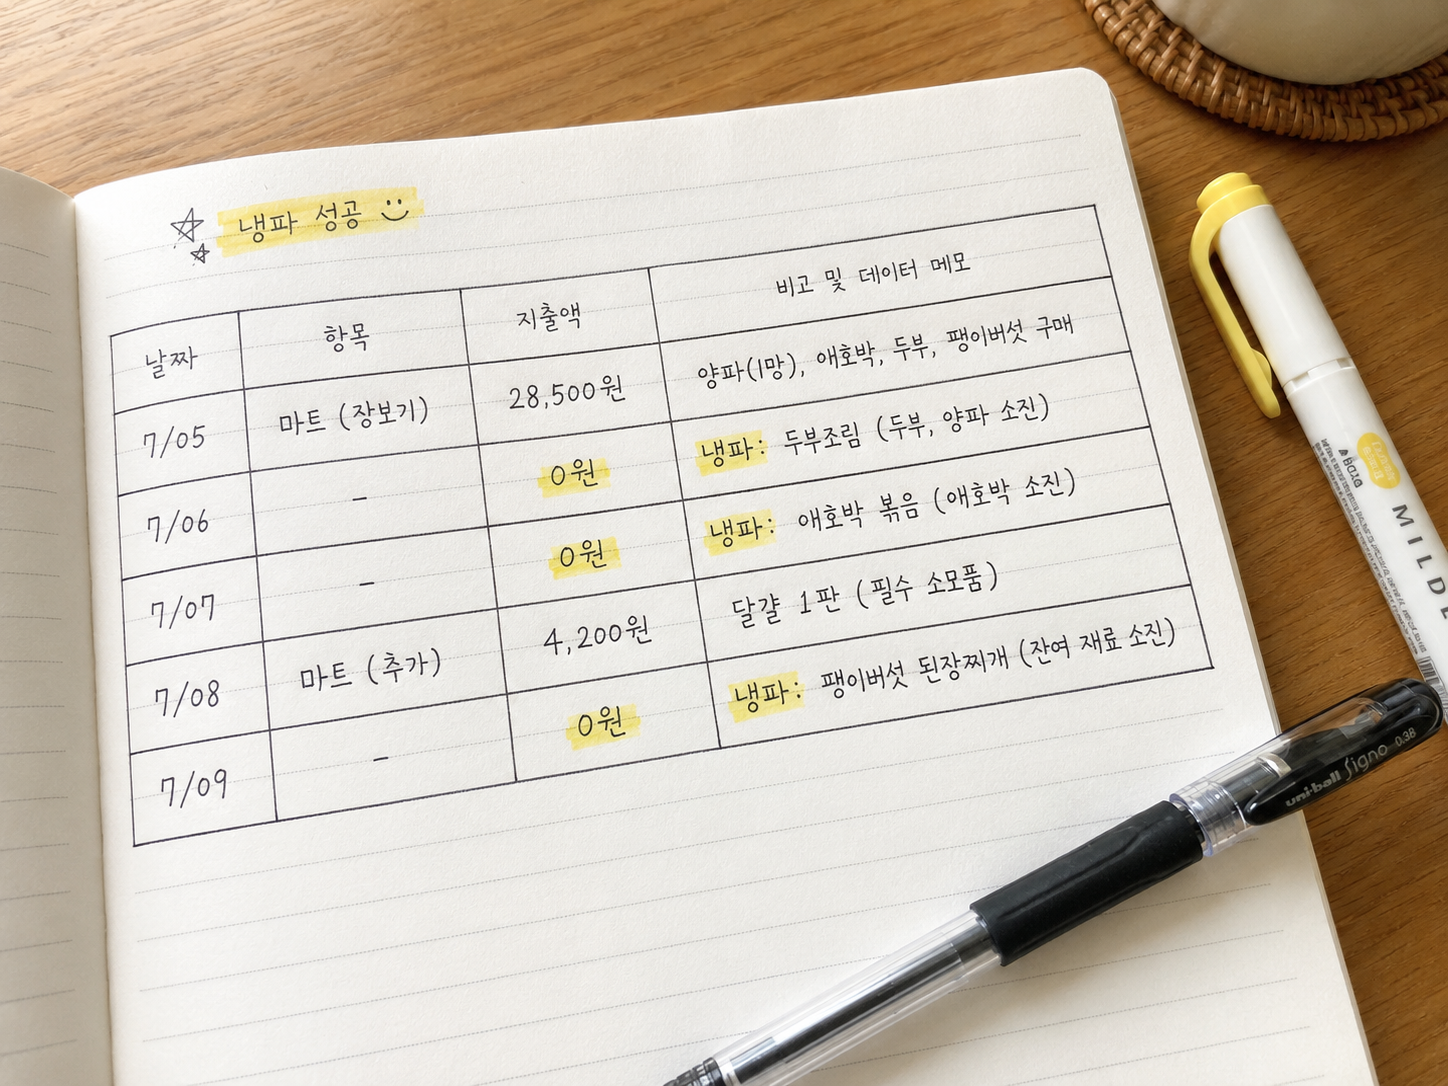 냉파 성공
날짜 항목 지출액 비고 및 데이터 메모
7/05 마트 (장보기) 28,500원 양파(1망), 애호박, 두부, 팽이버섯 구매
7/06 - 0원 냉파: 두부조림 (두부, 양파 소진)
7/07 - 0원 냉파: 애호박 볶음 (애호박 소진)
7/08 마트 (추가) 4,200원 달걀 1판 (필수 소모품)
7/09 - 0원 냉파: 팽이버섯 된장찌개 (잔여 재료 소진)
MILDL
uni-ball Signo 0.38